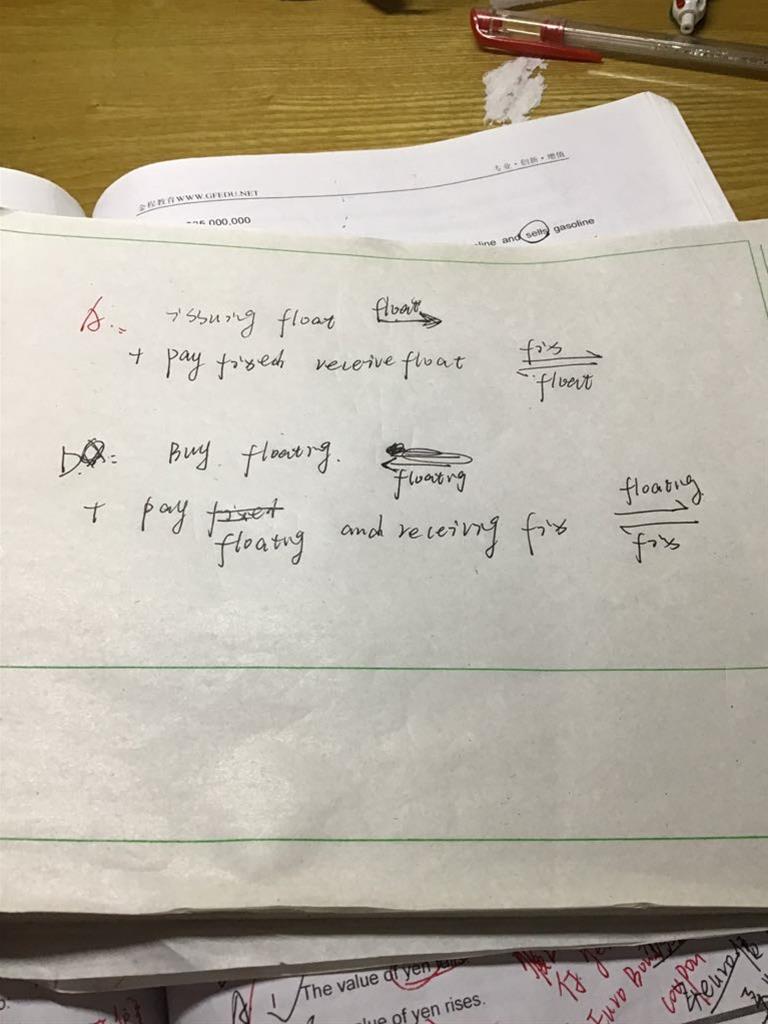 专业·创新·增值
金程教育WWW.GFEDU.NET
000,000
line and sells gasoline
A: issuing float float
+ pay fixed receive float fix
float
D: Buy floating. floating
+ pay fixed floating and receiving fix floating
fix
The value of yen falls
of yen rises.
Euro Bond
coupon